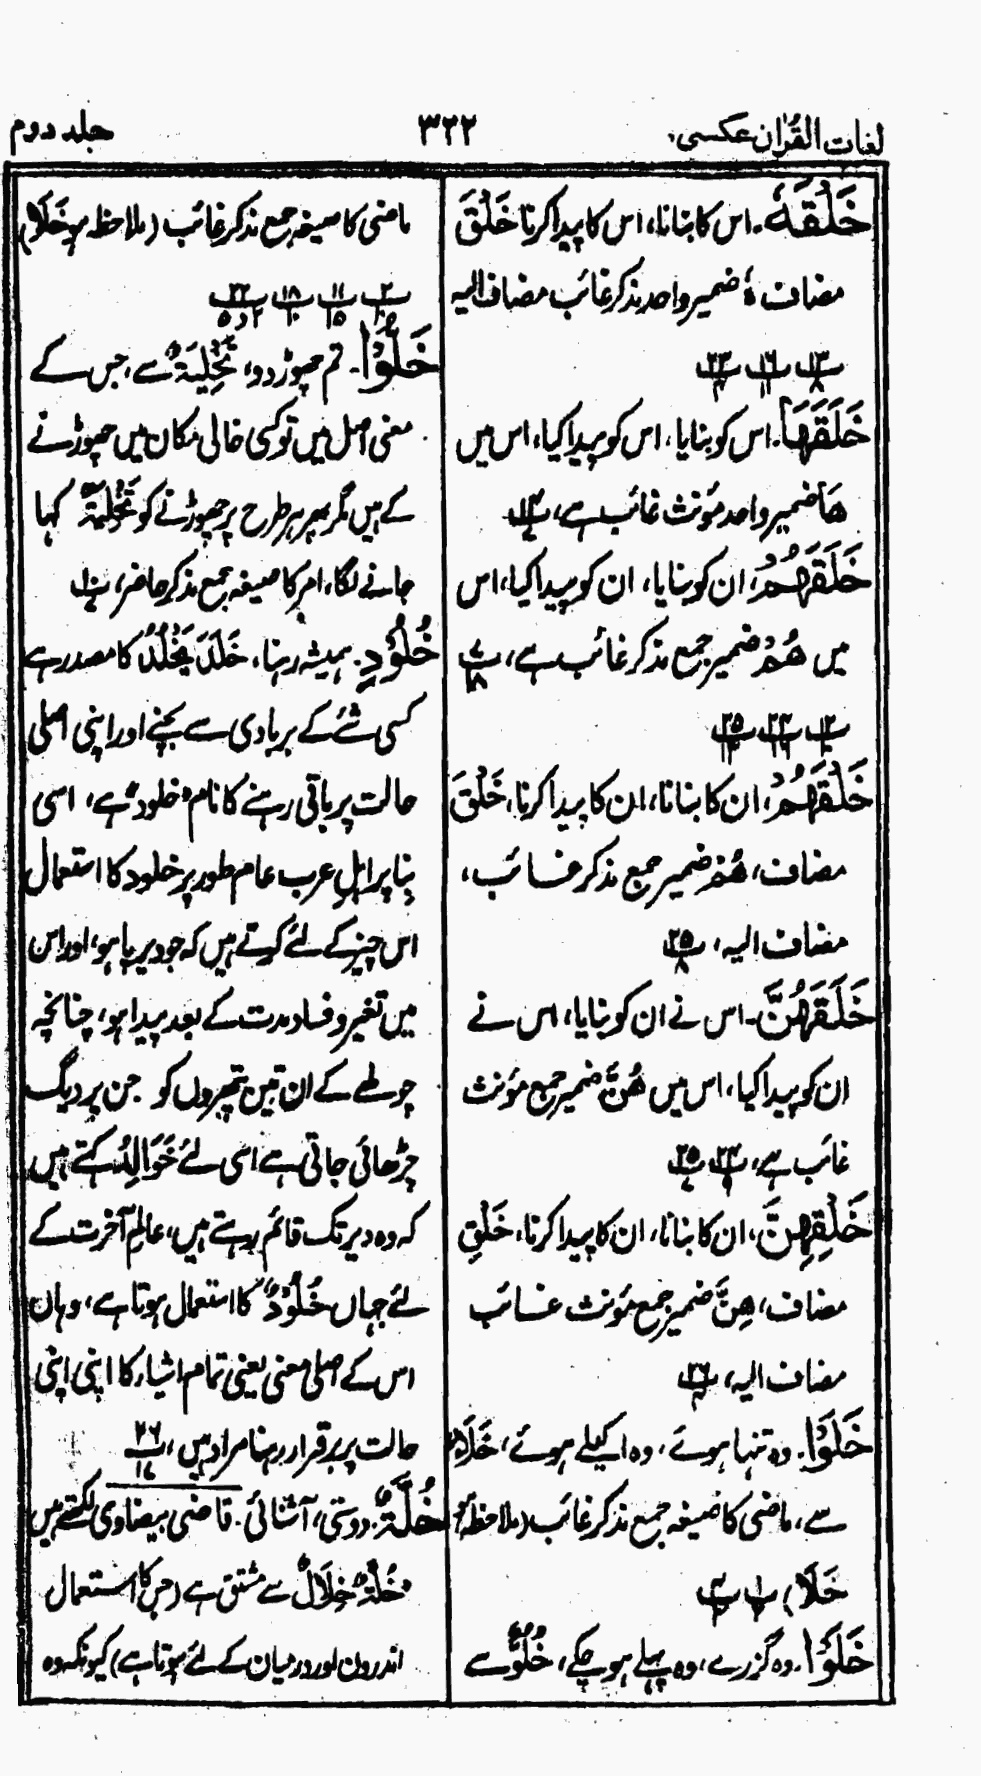 لغات القرآن عکسی
۳۲۲
جلد دوم
خَلْقَهٗ۔ اس کا بنانا، اس کا پیدا کرنا خَلْقَ
مضاف ہٗ ضمیر واحد مذکر غائب مضاف الیہ
خَلَقَهَا۔ اس کو بنایا، اس کو پیدا کیا، اس میں
ھَا ضمیر واحد مؤنث غائب ہے،
خَلَقَهُمْ، ان کو بنایا، ان کو پیدا کیا، اس
میں ھُمْ ضمیر جمع مذکر غائب ہے،
خَلْقَهُمْ، ان کا بنانا، ان کا پیدا کرنا، خَلْقَ
مضاف، ھُمْ ضمیر جمع مذکر غائب،
مضاف الیہ، پ۲۵
خَلَقَهُنَّ۔ اس نے ان کو بنایا، اس نے
ان کو پیدا کیا، اس میں ھُنَّ ضمیر جمع مؤنث
غائب ہے،
خَلْقِهِنَّ، ان کا بنانا، ان کا پیدا کرنا، خَلْقِ
مضاف، ھِنَّ ضمیر جمع مؤنث غائب
مضاف الیہ،
خَلَوْا۔ وہ تنہا ہوئے، وہ اکیلے ہوئے، خَلَاءٌ
سے، ماضی کا صیغہ جمع مذکر غائب (ملاحظہ ہو
خَلَا)
خَلَوْا۔ وہ گزرے، وہ پہلے ہو چکے، خُلُوٌّ سے
ماضی کا صیغہ جمع مذکر غائب (ملاحظہ ہو خَلَا)
خَلُّوْا۔ تم چھوڑ دو، تَخْلِیَۃٌ سے، جس کے
معنی اصل میں تو کسی خالی مکان میں چھوڑنے
کے ہیں مگر پھر ہر طرح پر چھوڑنے کو تَخْلِیَۃٌ کہا
جانے لگا، امر کا صیغہ جمع مذکر حاضر،
خُلُوْدِ۔ ہمیشہ رہنا، خَلَدَ یَخْلُدُ کا مصدر ہے
کسی شئے کے بربادی سے بچنے اور اپنی اصلی
حالت پر باقی رہنے کا نام "خلود" ہے، اسی
بنا پر اہلِ عرب عام طور پر خلود کا استعمال
اس چیز کے لئے کرتے ہیں کہ جو دیر پا ہو، اور اس
میں تغیر و فساد مدت کے بعد پیدا ہو، چنانچہ
چولھے کے ان تین پتھروں کو جن پر دیگ
چڑھائی جاتی ہے اسی لئے خَوَالِدُ کہتے ہیں
کہ وہ دیر تک قائم رہتے ہیں، عالمِ آخرت کے
لئے جہاں خُلُوْدٌ کا استعمال ہوتا ہے، وہاں
اس کے اصلی معنی یعنی تمام اشیاء کا اپنی اپنی
حالت پر برقرار رہنا مراد ہیں،
خُلَّۃٌ۔ دوستی، آشنائی۔ قاضی بیضاوی لکھتے ہیں
"خُلَّۃٌ" خِلَالٌ سے مشتق ہے (جس کا استعمال
اندرون اور درمیان کے لئے ہوتا ہے) کیونکہ وہ